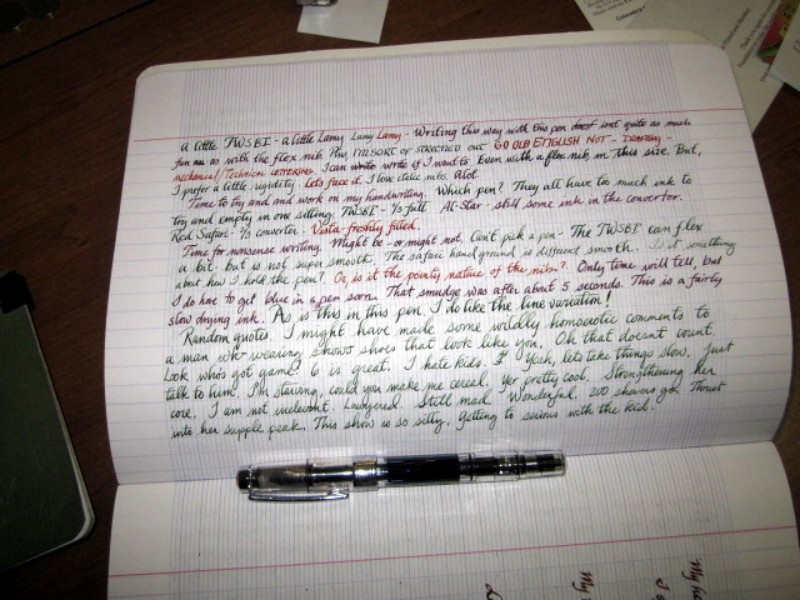 a little TWSBI - a little Lamy Lamy Lamy - Writing this way with this pen isn't quite as much
fun as with the flex nib. Plus, I'M SORT OF STRETCHED OUT GO OLD ENGLISH NOT - DRAFTING -
mechanical/Technical LETTERING. I can write write if I want to. Even with a flex nib, in This size. But,
I prefer a little rigidity. Lets face it, I love italic nibs. Alot.
Time to try and and work on my handwriting. Which pen? They all have too much ink to
try and empty in one sitting. TWSBI - 1/3 full. Al-Star - still some ink in the convertor.
Red Safari - 2/3 converter. Vista - freshly filled.
Time for nonsense writing. Might be - or might not. Can't pick a pen - The TWSBI can flex
a bit, but is not super smooth. The safari hand ground is different smooth. Is it something
about how I hold the pen? Or, is it the pointy nature of the nibs? Only time will tell, but
I do have to get blue in a pen soon. That smudge was after about 5 seconds. This is a fairly
slow drying ink. As is this in this pen. I do like the line variation!
Random quotes. I might have made some wildly homoerotic comments to
a man wearing shows shoes that look like you. Oh that doesnt count.
Look who's got game? 6 is great. I hate kids. Yeah, lets take things slow. Just
talk to him. I'm starving, could you make me cereal. Yer pretty cool. Strengthening her
core. I am not irrelevant. Lawyered. Still mad. Wonderful. 200 showers ago. Thrust
into her supple peak. This show is so silly. Getting to serious with the kid.
My
My
I